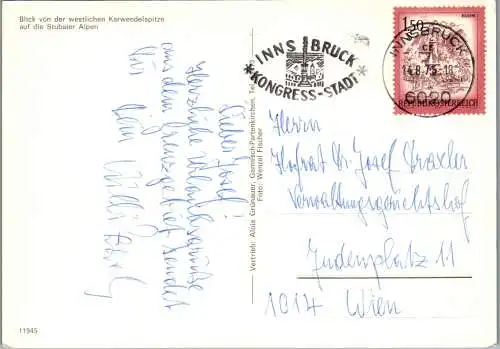 Blick von der westlichen Karwendelspitze
auf die Stubaier Alpen
Lieber Josef!
Herzliche Urlaubsgrüße
aus dem Grenzgebiet sendet
Dir Dein Willi
Vertrieb: Alois Grünauer, Garmisch-Partenkirchen, Tel.
Foto: Wenzel Fischer
INNSBRUCK
*KONGRESS-STADT*
INNSBRUCK
14.8.75-18
6020
1.50
REPUBLIK ÖSTERREICH
Herrn
Hofrat Dr. Josef Draxler
Verwaltungsgerichtshof
Judenplatz 11
1014 Wien
11945